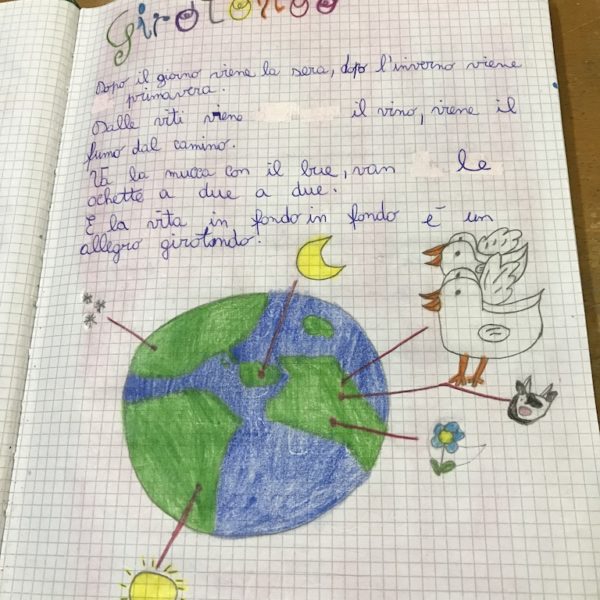 Girotondo
Dopo il giorno viene la sera, dopo l'inverno viene
primavera.
Dalle viti viene il vino, viene il
fumo dal camino.
Va la mucca con il bue, van le
ochette a due a due.
E la vita in fondo in fondo è un
allegro girotondo.